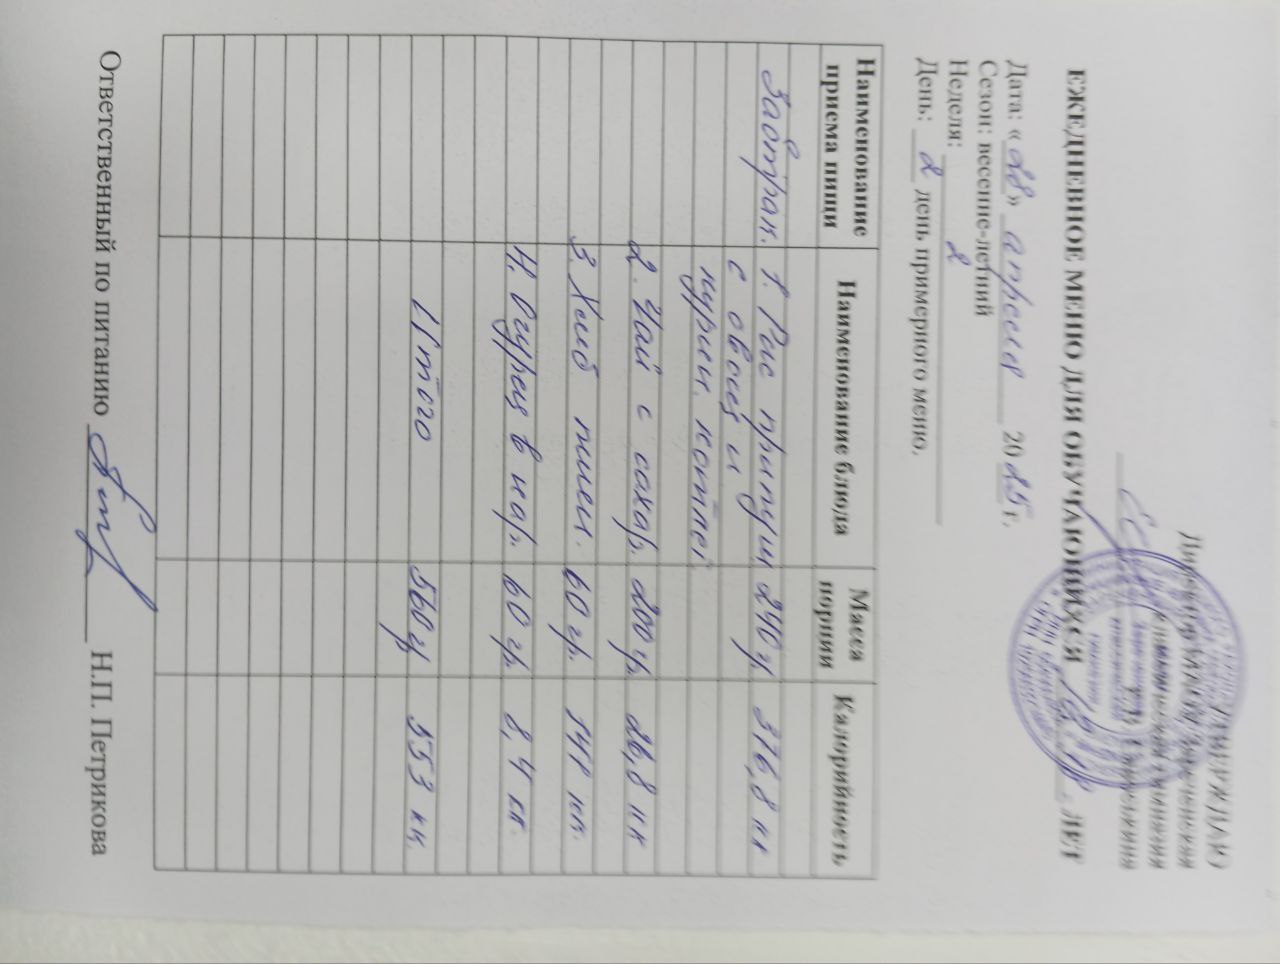 УТВЕРЖДАЮ
Директор
гимназия
ЕЖЕДНЕВНОЕ МЕНЮ ДЛЯ ОБУЧАЮЩИХСЯ ЛЕТ
Дата: «28» апреля 2025 г.
Сезон: весенне-летний
Неделя: 2
День: 2 день примерного меню.
Наименование приема пищи Наименование блюда Масса порции Калорийность
Завтрак. 1. Рис припущ 240 гр. 376,8 кк
с овощ и
курин. котлет.
2. Чай с сахар. 200 гр. 26,8 кк
3. Хлеб пшен. 60 гр. 141 кк.
4. Огурец в нар. 60 гр. 8,4 кк.
Итого 560 гр 553 кк
Ответственный по питанию Н.П. Петрикова